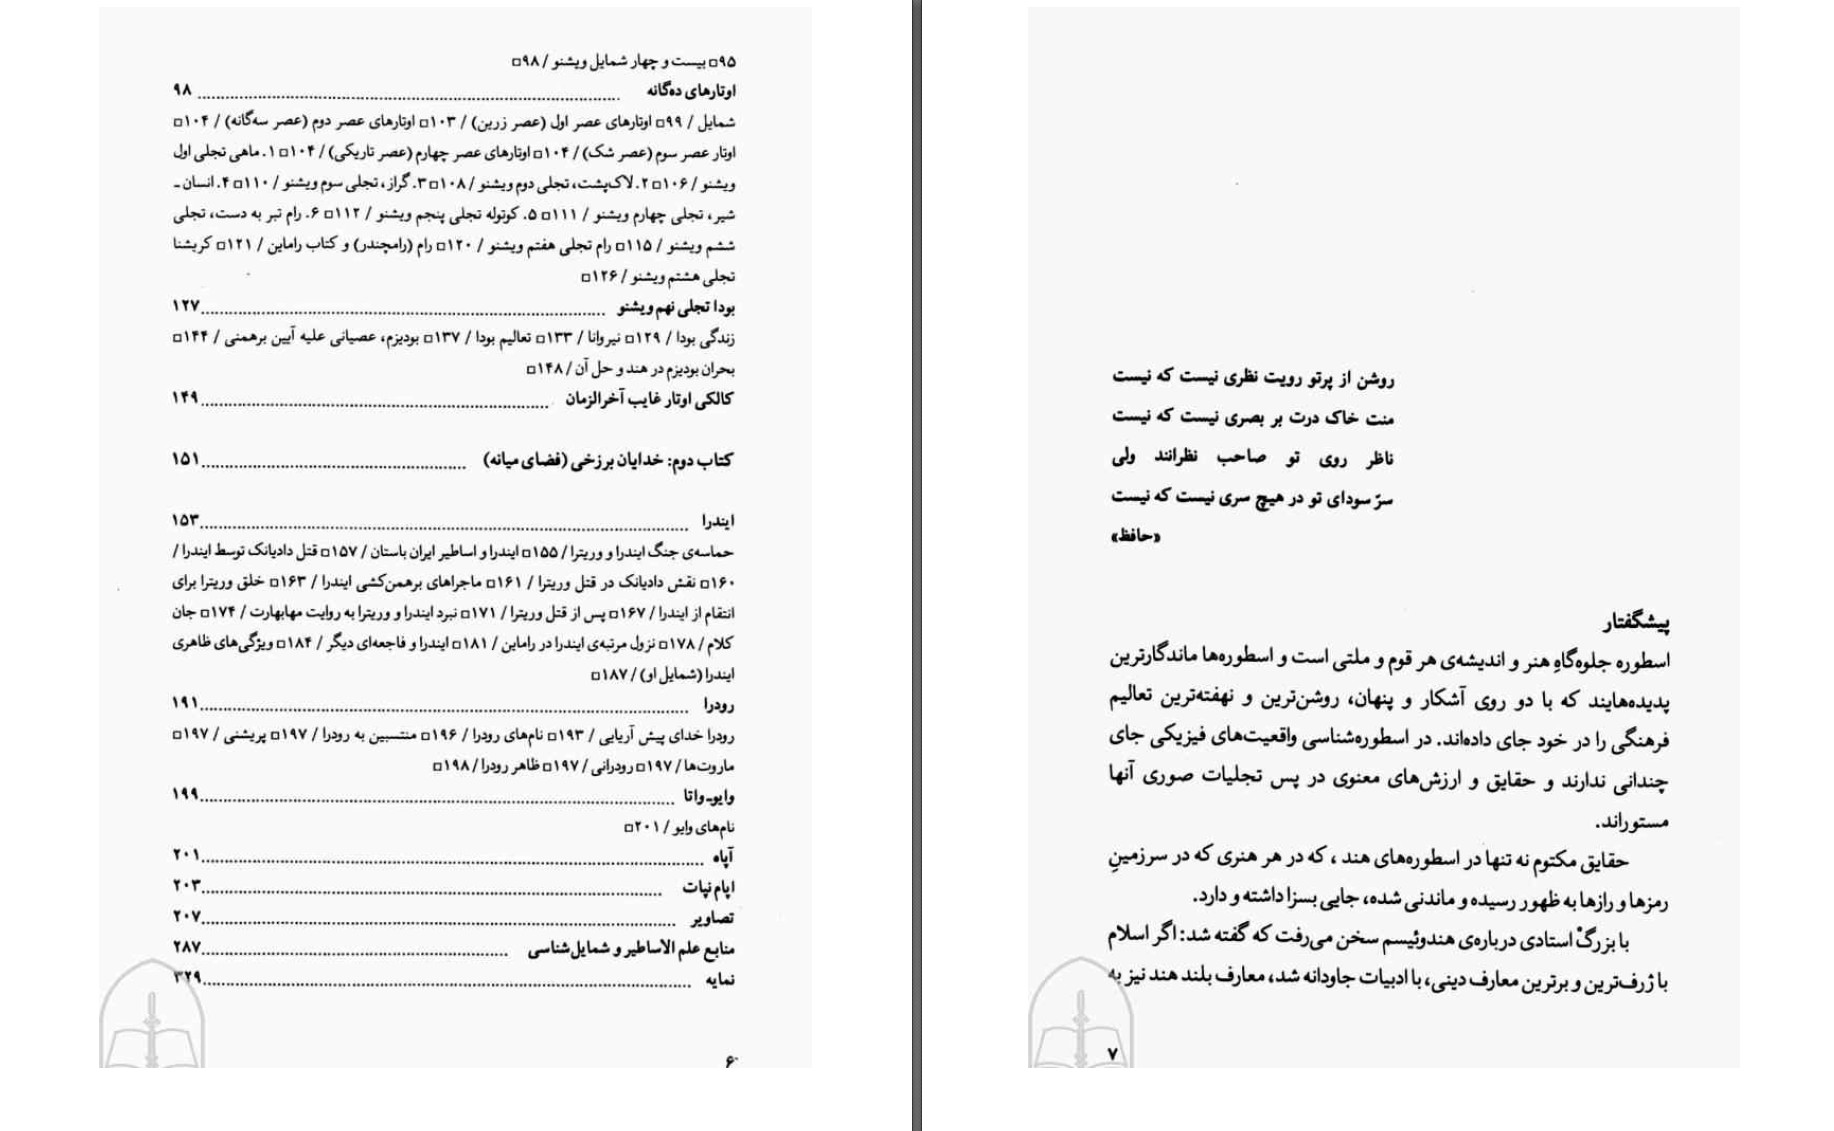 ۹۵□ بیست و چهار شمایل ویشنو / ۹۸□
اوتارهای ده‌گانه ........ ۹۸
شمایل / ۹۹□ اوتارهای عصر اول (عصر زرین) / ۱۰۳□ اوتارهای عصر دوم (عصر سه‌گانه) / ۱۰۴□
اوتار عصر سوم (عصر شک) / ۱۰۴□ اوتارهای عصر چهارم (عصر تاریکی) / ۱۰۴□ ۱. ماهی تجلی اول
ویشنو / ۱۰۶□ ۲. لاک‌پشت، تجلی دوم ویشنو / ۱۰۸□ ۳. گراز، تجلی سوم ویشنو / ۱۱۰□ ۴. انسان ـ
شیر، تجلی چهارم ویشنو / ۱۱۱□ ۵. کوتوله تجلی پنجم ویشنو / ۱۱۲□ ۶. رام تبر به دست، تجلی
ششم ویشنو / ۱۱۵□ رام تجلی هفتم ویشنو / ۱۲۰□ رام (رامچندر) و کتاب راماین / ۱۲۱□ کریشنا
تجلی هشتم ویشنو / ۱۲۶□
بودا تجلی نهم ویشنو ........ ۱۲۷
زندگی بودا / ۱۲۹□ نیروانا / ۱۳۳□ تعالیم بودا / ۱۳۷□ بودیزم، عصیانی علیه آیین برهمنی / ۱۴۴□
بحران بودیزم در هند و حل آن / ۱۴۸□
کالکی اوتار غایب آخرالزمان ........ ۱۴۹
کتاب دوم: خدایان برزخی (فضای میانه) ........ ۱۵۱
ایندرا ........ ۱۵۳
حماسه‌ی جنگ ایندرا و وریترا / ۱۵۵□ ایندرا و اساطیر ایران باستان / ۱۵۷□ قتل دادیانک توسط ایندرا /
۱۶۰□ نقش دادیانک در قتل وریترا / ۱۶۱□ ماجراهای برهمن‌کشی ایندرا / ۱۶۳□ خلق وریترا برای
انتقام از ایندرا / ۱۶۷□ پس از قتل وریترا / ۱۷۱□ نبرد ایندرا و وریترا به روایت مهابهارت / ۱۷۴□ جان
کلام / ۱۷۸□ نزول مرتبه‌ی ایندرا در راماین / ۱۸۱□ ایندرا و فاجعه‌ای دیگر / ۱۸۴□ ویژگی‌های ظاهری
ایندرا (شمایل او) / ۱۸۷□
رودرا ........ ۱۹۱
رودرا خدای پیش آریایی / ۱۹۳□ نام‌های رودرا / ۱۹۶□ منتسبین به رودرا / ۱۹۷□ پریشنی / ۱۹۷□
ماروت‌ها / ۱۹۷□ رودرانی / ۱۹۷□ ظاهر رودرا / ۱۹۸□
وایو-واتا ........ ۱۹۹
نام‌های وایو / ۲۰۱□
آپاه ........ ۲۰۱
اپام نپات ........ ۲۰۳
تصاویر ........ ۲۰۷
منابع علم الاساطیر و شمایل‌شناسی ........ ۲۸۷
نمایه ........ ۳۲۹
۶
روشن از پرتو رویت نظری نیست که نیست
منت خاک درت بر بصری نیست که نیست
ناظر روی تو صاحب نظرانند ولی
سرّ سودای تو در هیچ سری نیست که نیست
«حافظ»
پیشگفتار
اسطوره جلوه‌گاهِ هنر و اندیشه‌ی هر قوم و ملتی است و اسطوره‌ها ماندگارترین
پدیده‌هایند که با دو روی آشکار و پنهان، روشن‌ترین و نهفته‌ترین تعالیم
فرهنگی را در خود جای داده‌اند. در اسطوره‌شناسی واقعیت‌های فیزیکی جای
چندانی ندارند و حقایق و ارزش‌های معنوی در پس تجلیات صوری آنها
مستوراند.
حقایق مکتوم نه تنها در اسطوره‌های هند ، که در هر هنری که در سرزمینِ
رمزها و رازها به ظهور رسیده و ماندنی شده، جایی بسزا داشته و دارد.
با بزرگْ استادی درباره‌ی هندوئیسم سخن می‌رفت که گفته شد: اگر اسلام
با ژرف‌ترین و برترین معارف دینی، با ادبیات جاودانه شد، معارف بلند هند نیز به
۷